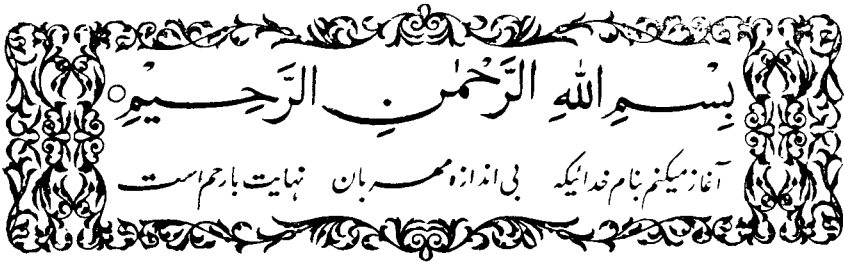 بِسْمِ اللهِ الرَّحْمٰنِ الرَّحِيْمِ ○
آغاز میکنم بنام خدائیکه بی اندازه مهربان نهایت بارحم است